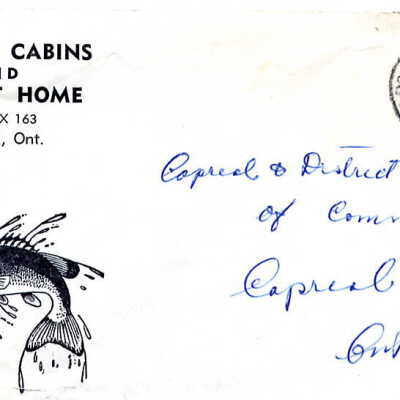 CABINS
ND
T HOME
X 163
, Ont.
Capreol & District
of Comm
Capreol
Ont